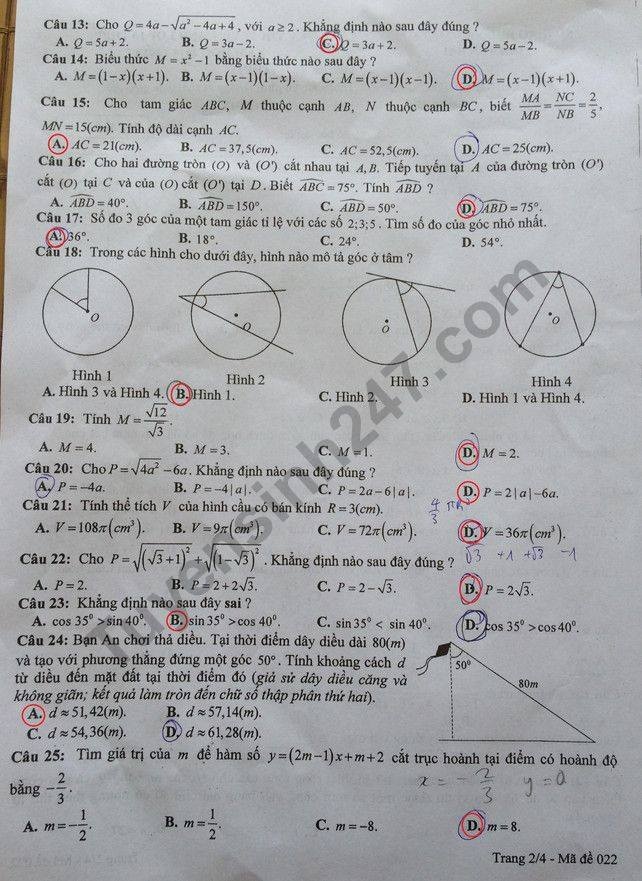 Câu 13: Cho Q = 4a − √(a² − 4a + 4), với a ≥ 2. Khẳng định nào sau đây đúng ?
A. Q = 5a + 2. B. Q = 3a − 2. C. Q = 3a + 2. D. Q = 5a − 2.
Câu 14: Biểu thức M = x² − 1 bằng biểu thức nào sau đây ?
A. M = (1 − x)(x + 1). B. M = (x − 1)(1 − x). C. M = (x − 1)(x − 1). D. M = (x − 1)(x + 1).
Câu 15: Cho tam giác ABC, M thuộc cạnh AB, N thuộc cạnh BC, biết MA/MB = NC/NB = 2/5,
MN = 15(cm). Tính độ dài cạnh AC.
A. AC = 21(cm). B. AC = 37,5(cm). C. AC = 52,5(cm). D. AC = 25(cm).
Câu 16: Cho hai đường tròn (O) và (O') cắt nhau tại A, B. Tiếp tuyến tại A của đường tròn (O')
cắt (O) tại C và của (O) cắt (O') tại D. Biết ABC = 75°. Tính ABD ?
A. ABD = 40°. B. ABD = 150°. C. ABD = 50°. D. ABD = 75°.
Câu 17: Số đo 3 góc của một tam giác tỉ lệ với các số 2;3;5. Tìm số đo của góc nhỏ nhất.
A. 36°. B. 18°. C. 24°. D. 54°.
Câu 18: Trong các hình cho dưới đây, hình nào mô tả góc ở tâm ?
O O O O
Hình 1 Hình 2 Hình 3 Hình 4
A. Hình 3 và Hình 4. B. Hình 1. C. Hình 2. D. Hình 1 và Hình 4.
Câu 19: Tính M = √12/√3.
A. M = 4. B. M = 3. C. M = 1. D. M = 2.
Câu 20: Cho P = √(4a²) − 6a. Khẳng định nào sau đây đúng ?
A. P = −4a. B. P = −4|a|. C. P = 2a − 6|a|. D. P = 2|a| − 6a.
Câu 21: Tính thể tích V của hình cầu có bán kính R = 3(cm). 4/3 π R³
A. V = 108π(cm³). B. V = 9π(cm³). C. V = 72π(cm³). D. V = 36π(cm³).
Câu 22: Cho P = √((√3 + 1)²) + √((1 − √3)²). Khẳng định nào sau đây đúng ? √3 + 1 + √3 − 1
A. P = 2. B. P = 2 + 2√3. C. P = 2 − √3. D. P = 2√3.
Câu 23: Khẳng định nào sau đây sai ?
A. cos 35° > sin 40°. B. sin 35° > cos 40°. C. sin 35° < sin 40°. D. cos 35° > cos 40°.
Câu 24: Bạn An chơi thả diều. Tại thời điểm dây diều dài 80(m)
và tạo với phương thẳng đứng một góc 50°. Tính khoảng cách d
từ diều đến mặt đất tại thời điểm đó (giả sử dây diều căng và
không giãn; kết quả làm tròn đến chữ số thập phân thứ hai).
50° 80m
A. d ≈ 51,42(m). B. d ≈ 57,14(m).
C. d ≈ 54,36(m). D. d ≈ 61,28(m).
Câu 25: Tìm giá trị của m để hàm số y = (2m − 1)x + m + 2 cắt trục hoành tại điểm có hoành độ
bằng −2/3. x = −2/3 y = 0
A. m = −1/2. B. m = 1/2. C. m = −8. D. m = 8.
Trang 2/4 - Mã đề 022
Tuyensinh247.com